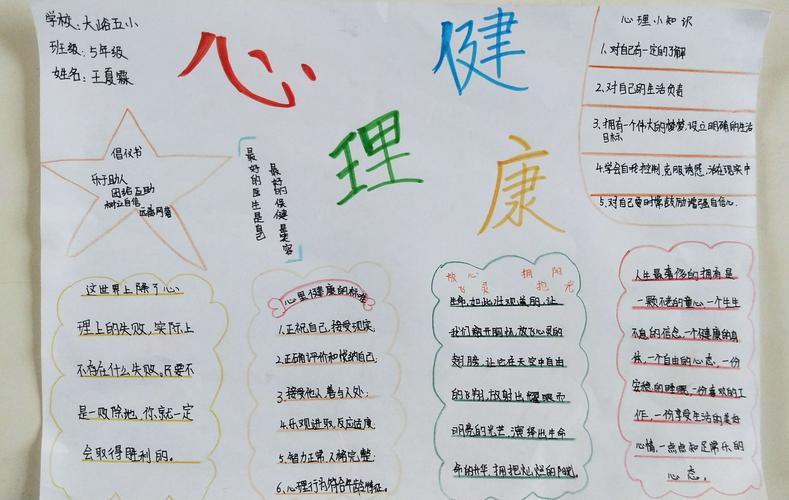 学校：大峪五小
班级：5年级
姓名：王夏霖
心理健康
倡议书
乐于助人
团结互助
树立自信
远离网瘾
最好的医生是自己
心理小知识
1、对自己有一定的了解
2、对自己的生活负责
3、拥有一个伟大的梦梦，设立明确的生活
目标
4、学会自我控制，克服诱惑，活在现实中
5、对自己要时常鼓励增强自信心.
这世界上除了心
理上的失败，实际上
不存在什么失败。只要不
是一败除地，你就一定
会取得胜利的。
心里健康的标准
1.正视自己，接受现实;
2.正确评价和悦纳自己;
3.接受他人，善与人处;
4.乐观进取，反应适度
5.智力正常，人格完整
6.心理行为符合年龄特征。
放飞心灵 拥抱阳光
生命,如此壮观美丽,让
我们敞开胸怀,放飞心灵的
翅膀,让它在天空中自由
的飞翔,放射出耀眼而
明亮的光芒,演绎出生命
命的升华,拥抱灿烂的阳光
人生最奢侈的拥有是
一颗不老的童心一个生生
不息的信念,一个健康的身
体,一个自由的心态,一份
安稳的睡眠,一份喜欢的工
作,一份享受生活的美好
心情,一点点知足常乐的
心态。